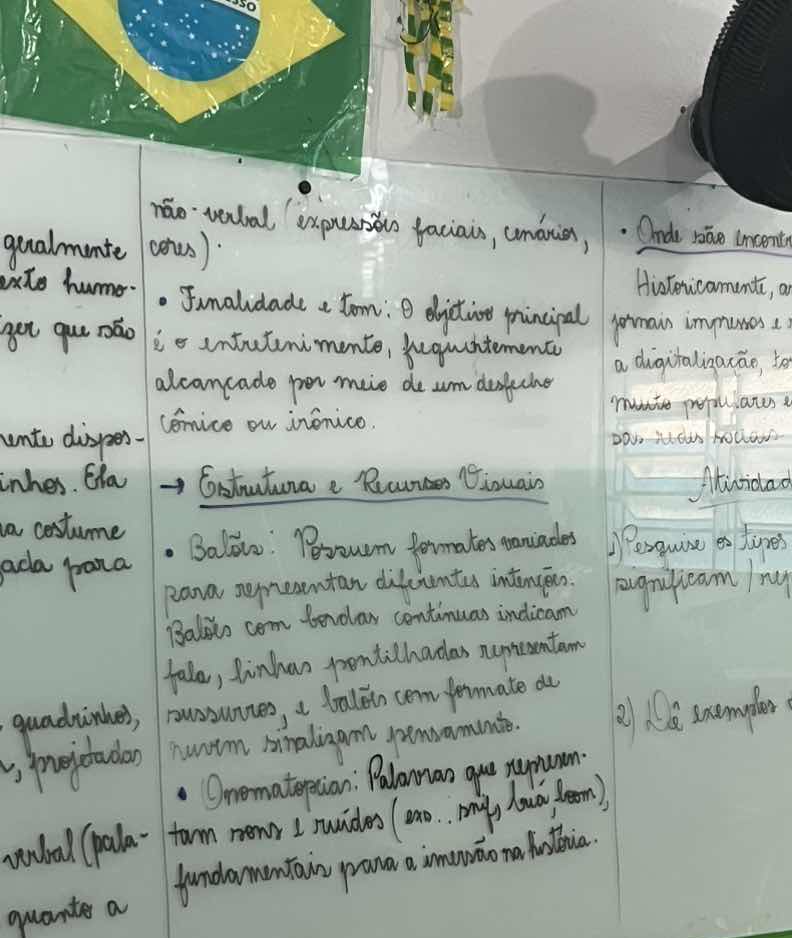 sso
geralmente
exto humo-
zer que são
mente dispos-
inhos. Ela
ua costume
jada para
quadrinhos,
projetadas
verbal (pala-
quanto a
não-verbal (expressões faciais, cenários,
cores).
• Finalidade e tom: O objetivo principal
é o entretenimento, frequentemente
alcançado por meio de um desfecho
cômico ou irônico.
→ Estrutura e Recursos Visuais
• Balões: Possuem formatos variados
para representar diferentes intenções.
Balões com bordas contínuas indicam
fala, linhas pontilhadas representam
sussurros, e balões com formato de
nuvem sinalizam pensamento.
• Onomatopeias: Palavras que represen-
tam sons e ruídos (exs.: snif, buá, boom),
fundamentais para a imersão na história.
• Onde são encontr
Historicamente, a
jornais impressos e
a digitalização, to
muito populares e
nas redes sociais.
Atividad
1) Pesquise os tipos
significam / rep
2) Dê exemplos